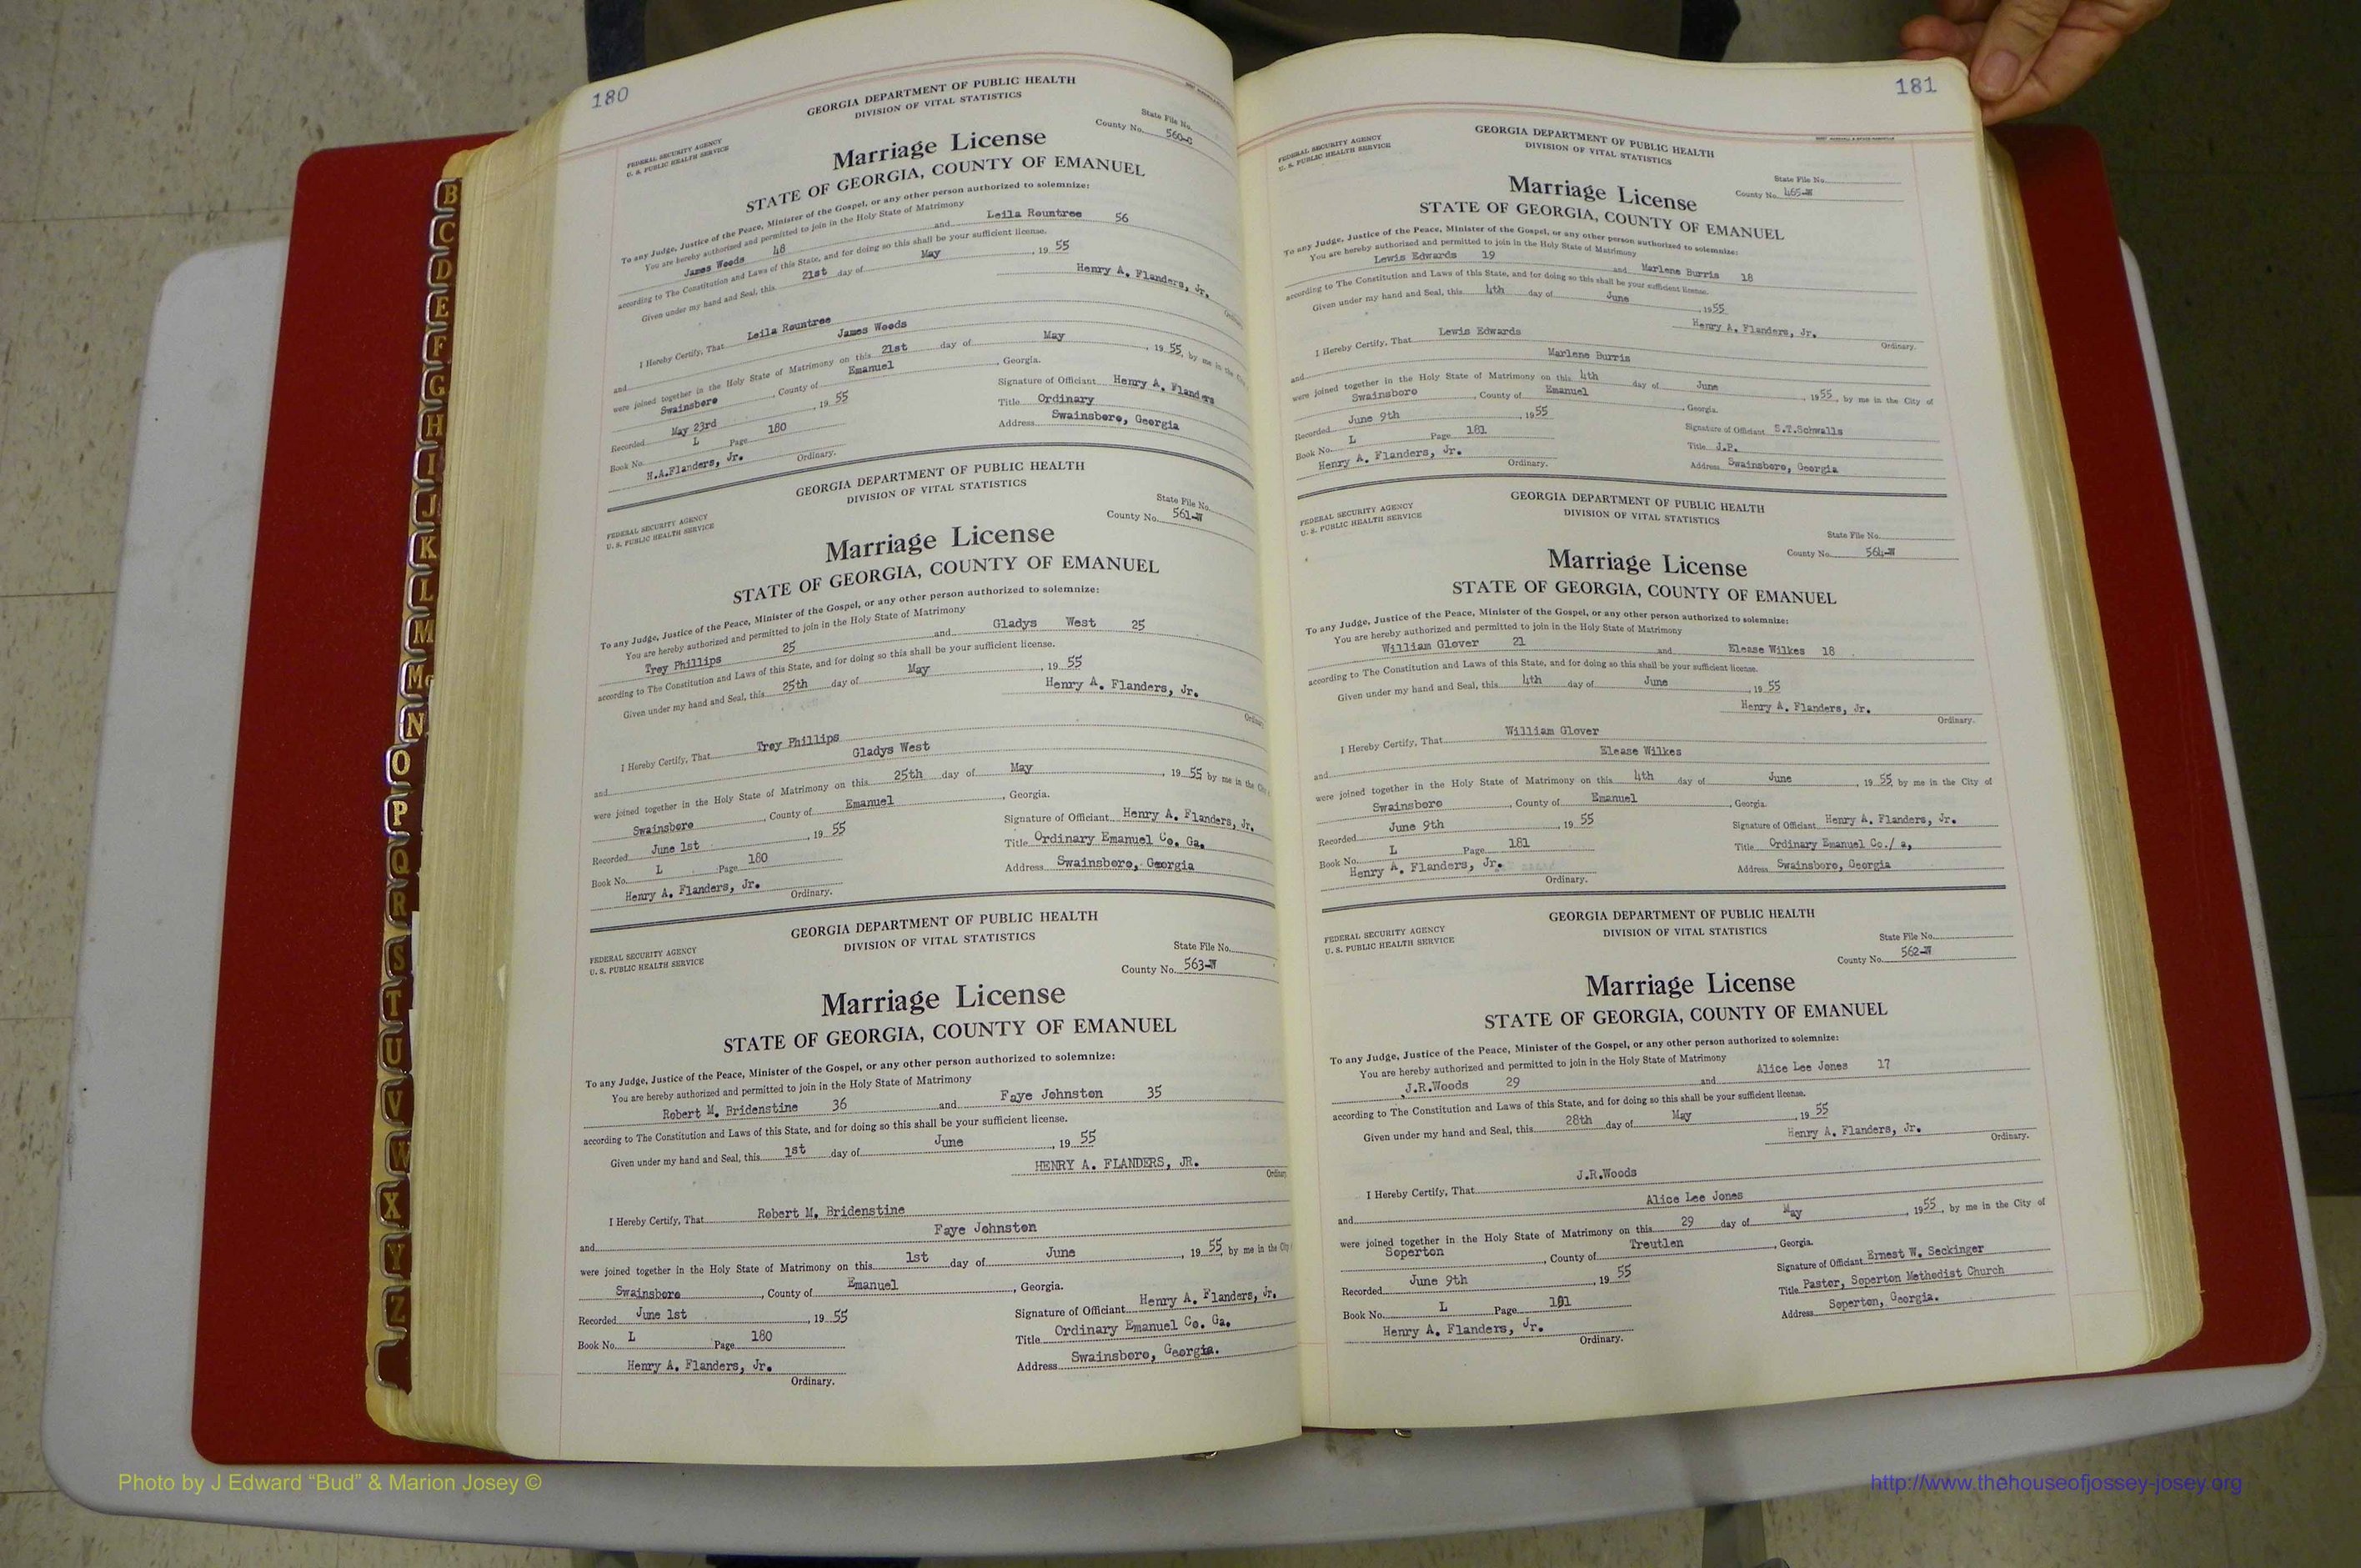 180
GEORGIA DEPARTMENT OF PUBLIC HEALTH
DIVISION OF VITAL STATISTICS
FEDERAL SECURITY AGENCY
U. S. PUBLIC HEALTH SERVICE
State File No.
County No. 560-C
Marriage License
STATE OF GEORGIA, COUNTY OF EMANUEL
To any Judge, Justice of the Peace, Minister of the Gospel, or any other person authorized to solemnize:
You are hereby authorized and permitted to join in the Holy State of Matrimony
James Woods 48 and Leila Rountree 56
according to The Constitution and Laws of this State, and for doing so this shall be your sufficient license.
Given under my hand and Seal, this 21st day of May, 19 55
Henry A. Flanders, Jr.
Ordinary
I Hereby Certify, That Leila Rountree
and James Woods
were joined together in the Holy State of Matrimony on this 21st day of May, 19 55, by me in the City
Swainsboro, County of Emanuel, Georgia.
Recorded May 23rd, 19 55
Signature of Officiant Henry A. Flanders
Book No. L Page 180
Title Ordinary
H.A.Flanders, Jr. Ordinary.
Address Swainsboro, Georgia
GEORGIA DEPARTMENT OF PUBLIC HEALTH
DIVISION OF VITAL STATISTICS
FEDERAL SECURITY AGENCY
U. S. PUBLIC HEALTH SERVICE
State File No.
County No. 561-W
Marriage License
STATE OF GEORGIA, COUNTY OF EMANUEL
To any Judge, Justice of the Peace, Minister of the Gospel, or any other person authorized to solemnize:
You are hereby authorized and permitted to join in the Holy State of Matrimony
Troy Phillips 25 and Gladys West 25
according to The Constitution and Laws of this State, and for doing so this shall be your sufficient license.
Given under my hand and Seal, this 25th day of May, 19 55
Henry A. Flanders, Jr.
Ordinary
I Hereby Certify, That Troy Phillips
and Gladys West
were joined together in the Holy State of Matrimony on this 25th day of May, 19 55 by me in the City
Swainsboro, County of Emanuel, Georgia.
Recorded June 1st, 19 55
Signature of Officiant Henry A. Flanders, Jr.
Book No. L Page 180
Title Ordinary Emanuel Co. Ga.
Henry A. Flanders, Jr. Ordinary.
Address Swainsboro, Georgia
GEORGIA DEPARTMENT OF PUBLIC HEALTH
DIVISION OF VITAL STATISTICS
FEDERAL SECURITY AGENCY
U. S. PUBLIC HEALTH SERVICE
State File No.
County No. 563-W
Marriage License
STATE OF GEORGIA, COUNTY OF EMANUEL
To any Judge, Justice of the Peace, Minister of the Gospel, or any other person authorized to solemnize:
You are hereby authorized and permitted to join in the Holy State of Matrimony
Robert M. Bridenstine 36 and Faye Johnston 35
according to The Constitution and Laws of this State, and for doing so this shall be your sufficient license.
Given under my hand and Seal, this 1st day of June, 19 55
HENRY A. FLANDERS, JR.
Ordinary
I Hereby Certify, That Robert M. Bridenstine
and Faye Johnston
were joined together in the Holy State of Matrimony on this 1st day of June, 19 55, by me in the City
Swainsboro, County of Emanuel, Georgia.
Recorded June 1st, 19 55
Signature of Officiant Henry A. Flanders, Jr.
Book No. L Page 180
Title Ordinary Emanuel Co. Ga.
Henry A. Flanders, Jr.
Ordinary.
Address Swainsboro, Georgia.
181
GEORGIA DEPARTMENT OF PUBLIC HEALTH
DIVISION OF VITAL STATISTICS
FEDERAL SECURITY AGENCY
U. S. PUBLIC HEALTH SERVICE
State File No.
County No. 465-W
Marriage License
STATE OF GEORGIA, COUNTY OF EMANUEL
To any Judge, Justice of the Peace, Minister of the Gospel, or any other person authorized to solemnize:
You are hereby authorized and permitted to join in the Holy State of Matrimony
Lewis Edwards 19 and Marlene Burris 18
according to The Constitution and Laws of this State, and for doing so this shall be your sufficient license.
Given under my hand and Seal, this 4th day of June, 19 55
Henry A. Flanders, Jr.
Ordinary.
I Hereby Certify, That Lewis Edwards
and Marlene Burris
were joined together in the Holy State of Matrimony on this 4th day of June, 19 55, by me in the City of
Swainsboro, County of Emanuel, Georgia.
Recorded June 9th, 19 55
Signature of Officiant S.T.Schwalls
Book No. L Page 181
Title J.P.
Henry A. Flanders, Jr. Ordinary.
Address Swainsboro, Georgia
GEORGIA DEPARTMENT OF PUBLIC HEALTH
DIVISION OF VITAL STATISTICS
FEDERAL SECURITY AGENCY
U. S. PUBLIC HEALTH SERVICE
State File No.
County No. 564-W
Marriage License
STATE OF GEORGIA, COUNTY OF EMANUEL
To any Judge, Justice of the Peace, Minister of the Gospel, or any other person authorized to solemnize:
You are hereby authorized and permitted to join in the Holy State of Matrimony
William Glover 21 and Elease Wilkes 18
according to The Constitution and Laws of this State, and for doing so this shall be your sufficient license.
Given under my hand and Seal, this 4th day of June, 19 55
Henry A. Flanders, Jr.
Ordinary.
I Hereby Certify, That William Glover
and Elease Wilkes
were joined together in the Holy State of Matrimony on this 4th day of June, 19 55 by me in the City of
Swainsboro, County of Emanuel, Georgia.
Recorded June 9th, 19 55
Signature of Officiant Henry A. Flanders, Jr.
Book No. L Page 181
Title Ordinary Emanuel Co./ a,
Henry A. Flanders, Jr.
Ordinary.
Address Swainsboro, Georgia
GEORGIA DEPARTMENT OF PUBLIC HEALTH
DIVISION OF VITAL STATISTICS
FEDERAL SECURITY AGENCY
U. S. PUBLIC HEALTH SERVICE
State File No.
County No. 562-W
Marriage License
STATE OF GEORGIA, COUNTY OF EMANUEL
To any Judge, Justice of the Peace, Minister of the Gospel, or any other person authorized to solemnize:
You are hereby authorized and permitted to join in the Holy State of Matrimony
J.R.Woods 29 and Alice Lee Jones 17
according to The Constitution and Laws of this State, and for doing so this shall be your sufficient license.
Given under my hand and Seal, this 28th day of May, 19 55
Henry A. Flanders, Jr.
Ordinary.
I Hereby Certify, That J.R.Woods
and Alice Lee Jones
were joined together in the Holy State of Matrimony on this 29 day of May, 19 55, by me in the City of
Soperton, County of Treutlen, Georgia.
Recorded June 9th, 19 55
Signature of Officiant Ernest W. Seckinger
Book No. L Page 181
Title Pastor, Soperton Methodist Church
Henry A. Flanders, Jr.
Ordinary.
Address Soperton, Georgia.
B
C
D
E
F
G
H
I
J
K
L
M
Mc
N
O
P
Q
R
S
T
U
V
W
X
Y
Z
Photo by J Edward “Bud” & Marion Josey ©
http://www.thehouseofjossey-josey.org